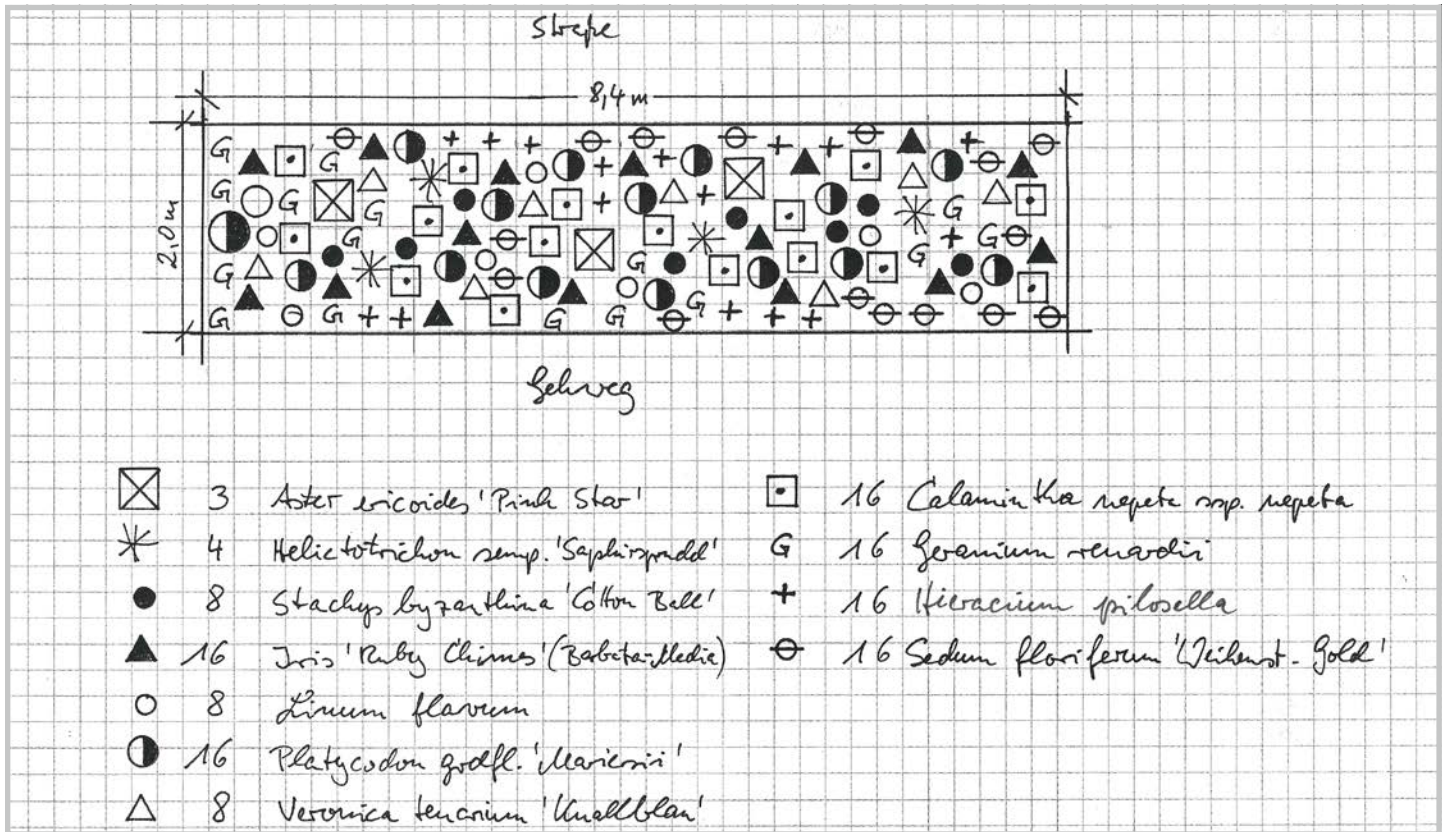 Straße
8,4 m
2,0 m
Gehweg
3 Aster ericoides 'Pink Star'
4 Helictotrichon semp. 'Saphirsprudel'
8 Stachys byzanthina 'Cotton Ball'
16 Iris 'Ruby Chimes' (Barbata-Media)
8 Linum flavum
16 Platycodon grdfl. 'Mariesii'
8 Veronica teucrium 'Knallblau'
16 Calamintha nepeta ssp. nepeta
G 16 Geranium renardii
16 Hieracium pilosella
16 Sedum floriferum 'Weihenst. Gold'